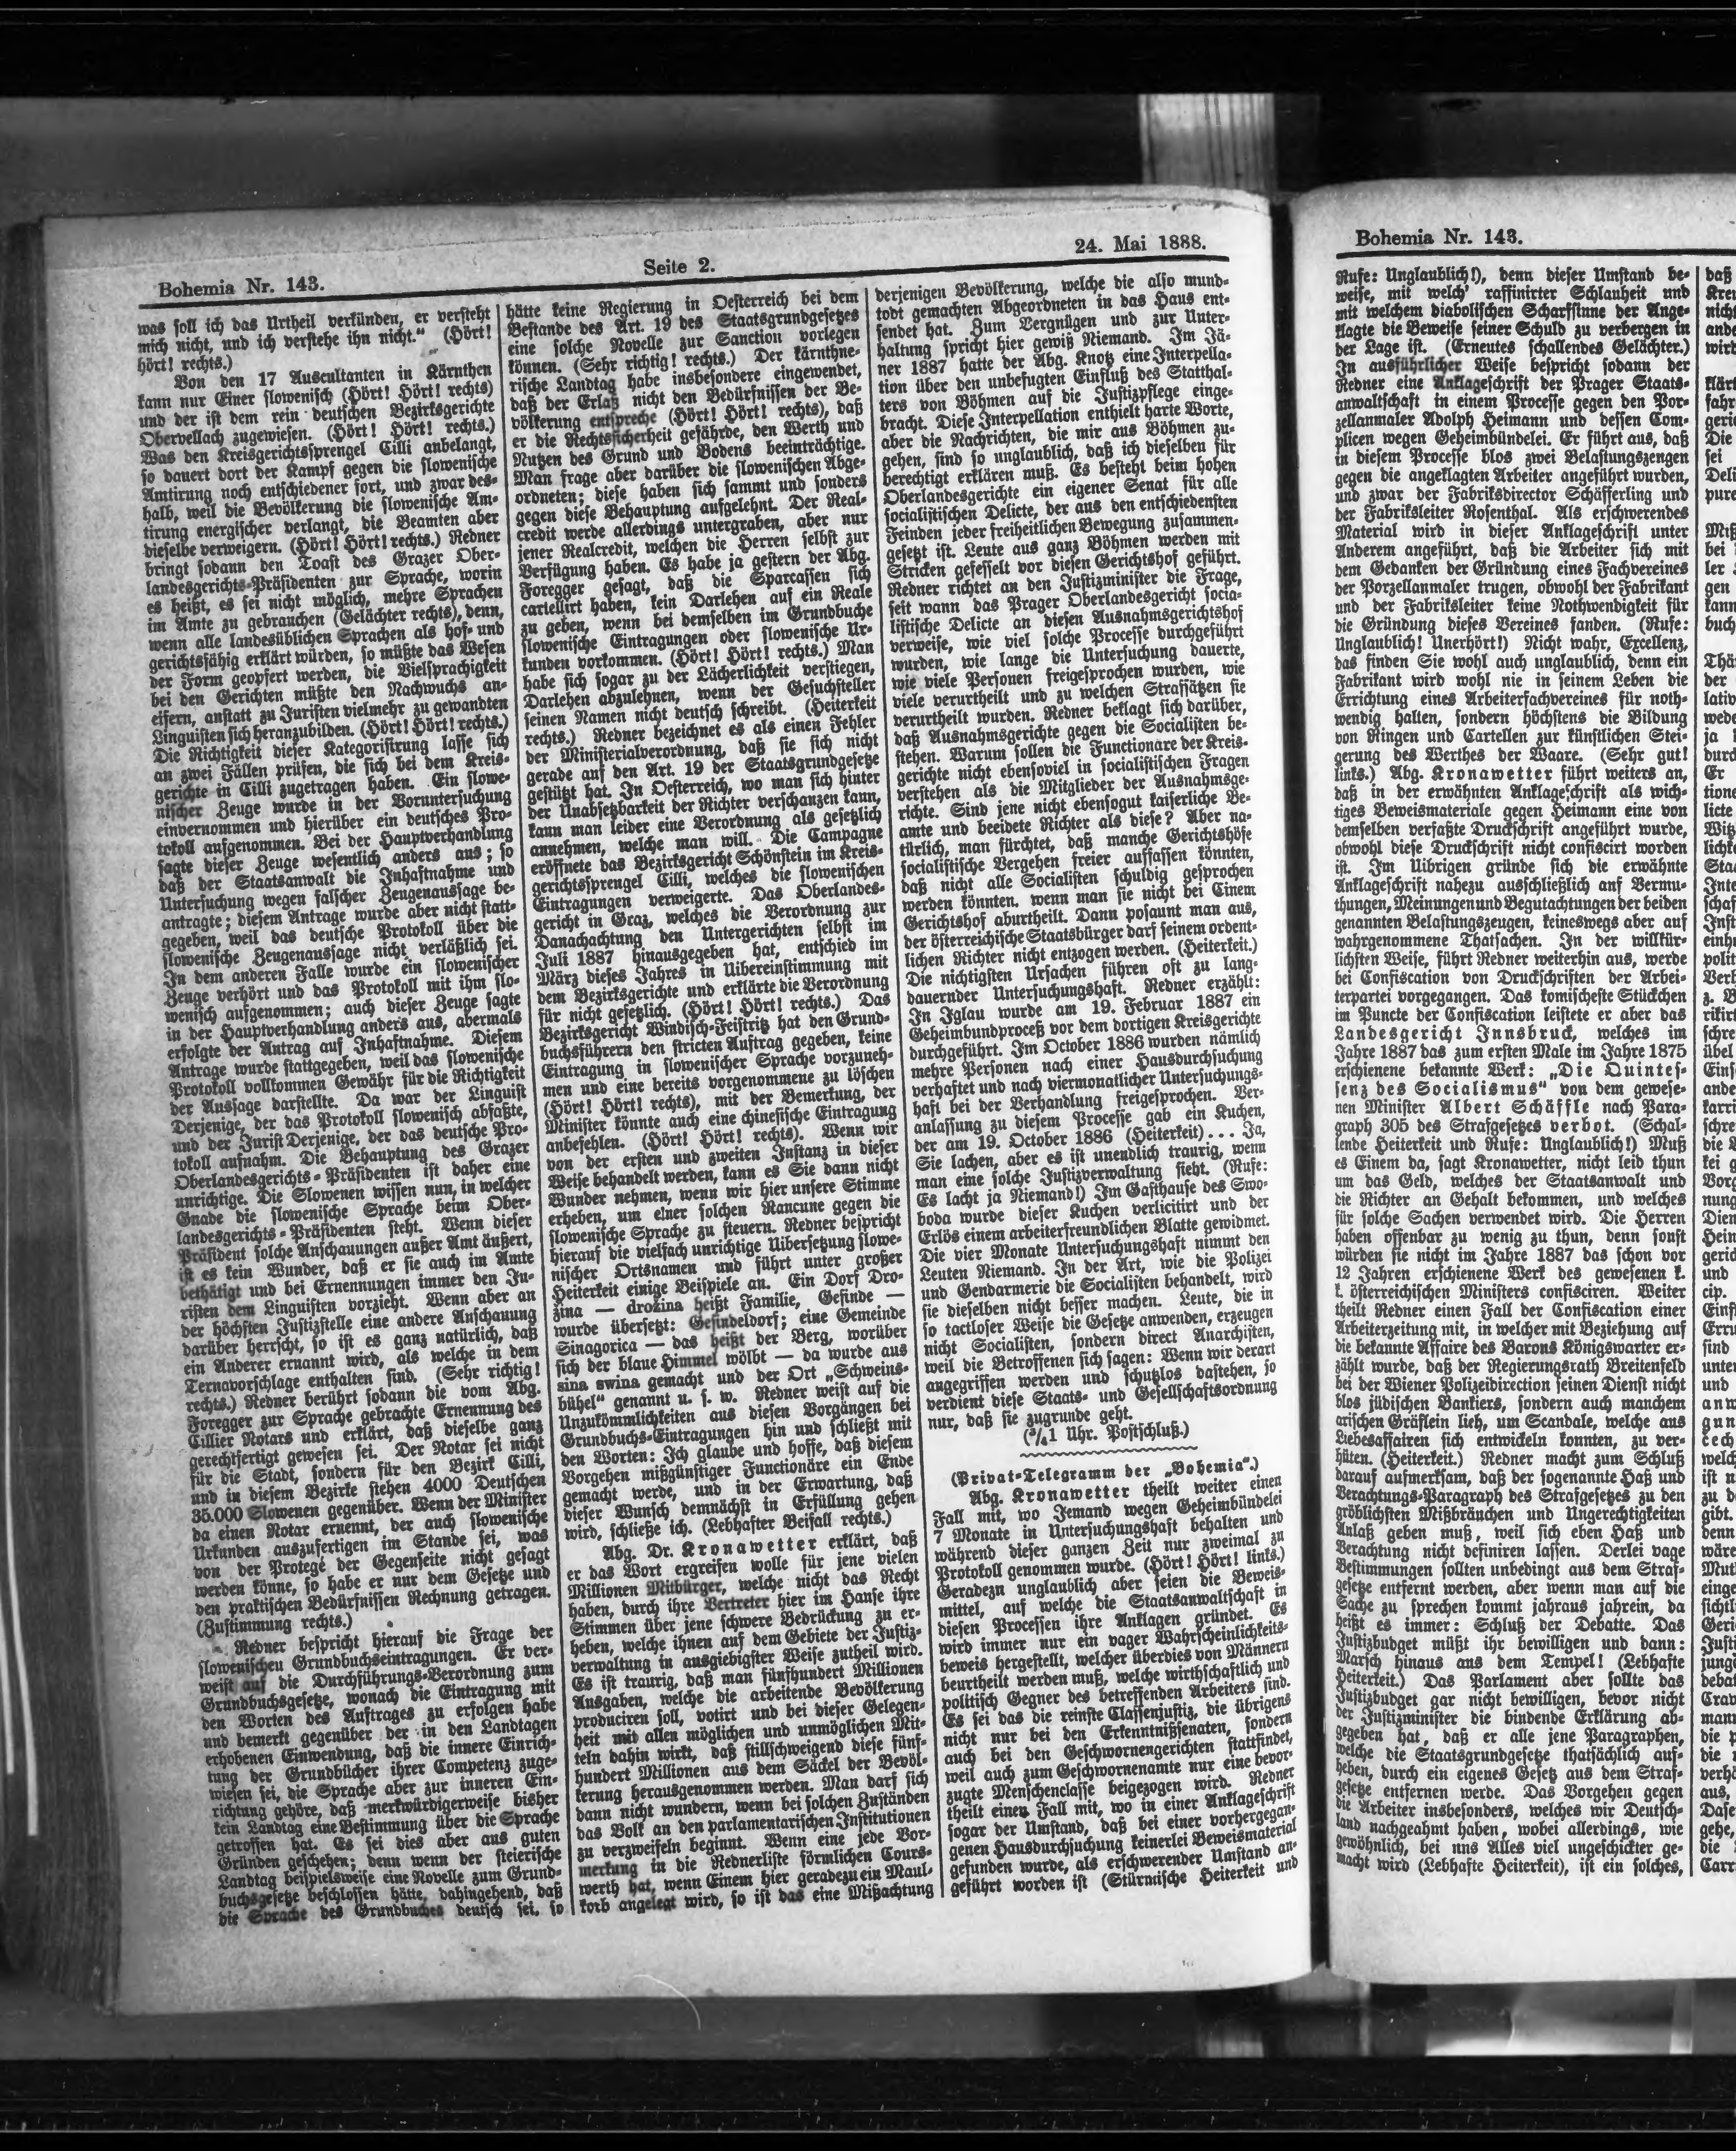 Bohemia Nr. 143.
Seite 2.
24. Mai 1888.
was soll ich das Urtheil verkünden, er versteht
mich nicht, und ich verstehe ihn nicht.“ (Hört!
hört! rechts.)
Von den 17 Auscultanten in Kärnthen
kann nur Einer slowenisch (Hört! Hört! rechts)
und der ist dem rein deutschen Bezirksgerichte
Oberwellach zugewiesen. (Hört! Hört! rechts.)
Was den Kreisgerichtssprengel Cilli anbelangt,
so dauert dort der Kampf gegen die slowenische
Amtirung noch entschiedener fort, und zwar des-
halb, weil die Bevölkerung die slowenische Am-
tirung energischer verlangt, die Beamten aber
dieselbe verweigern. (Hört! Hört! rechts.) Redner
bringt sodann den Toast des Grazer Ober-
landesgerichts-Präsidenten zur Sprache, worin
es heißt, es sei nicht möglich, mehre Sprachen
im Amte zu gebrauchen (Gelächter rechts), denn,
wenn alle landesüblichen Sprachen als hof- und
gerichtsfähig erklärt würden, so müßte das Wesen
der Form geopfert werden, die Vielsprachigkeit
bei den Gerichten müßte den Nachwuchs an-
eifern, anstatt zu Juristen vielmehr zu gewandten
Linguisten sich heranzubilden. (Hört! Hört! rechts.)
Die Richtigkeit dieser Kategorisirung lasse sich
an zwei Fällen prüfen, die sich bei dem Kreis-
gerichte in Cilli zugetragen haben. Ein slowe-
nischer Zeuge wurde in der Voruntersuchung
einvernommen und hierüber ein deutsches Pro-
tokoll aufgenommen. Bei der Hauptverhandlung
sagte dieser Zeuge wesentlich anders aus; so
daß der Staatsanwalt die Inhaftnahme und
Untersuchung wegen falscher Zeugenaussage be-
antragte; diesem Antrage wurde aber nicht statt-
gegeben, weil das deutsche Protokoll über die
slowenische Zeugenaussage nicht verläßlich sei.
In dem anderen Falle wurde ein slowenischer
Zeuge verhört und das Protokoll mit ihm slo-
wenisch aufgenommen; auch dieser Zeuge sagte
in der Hauptverhandlung anders aus, abermals
erfolgte der Antrag auf Inhaftnahme. Diesem
Antrage wurde stattgegeben, weil das slowenische
Protokoll vollkommen Gewähr für die Richtigkeit
der Aussage darstellte. Da war der Linguist
Derjenige, der das Protokoll slowenisch abfaßte,
und der Jurist Derjenige, der das deutsche Pro-
tokoll aufnahm. Die Behauptung des Grazer
Oberlandesgerichts-Präsidenten ist daher eine
unrichtige. Die Slowenen wissen nun, in welcher
Gnade die slowenische Sprache beim Ober-
landesgerichts-Präsidenten steht. Wenn dieser
Präsident solche Anschauungen außer Amt äußert,
ist es kein Wunder, daß er sie auch im Amte
bethätigt und bei Ernennungen immer den Ju-
risten dem Linguisten vorzieht. Wenn aber an
der höchsten Justizstelle eine andere Anschauung
darüber herrscht, so ist es ganz natürlich, daß
ein Anderer ernannt wird, als welche in dem
Ternavorschlage enthalten sind. (Sehr richtig!
rechts.) Redner berührt sodann die vom Abg.
Foregger zur Sprache gebrachte Ernennung des
Cillier Notars und erklärt, daß dieselbe ganz
gerechtfertigt gewesen sei. Der Notar sei nicht
für die Stadt, sondern für den Bezirk Cilli,
und in diesem Bezirke stehen 4000 Deutschen
35.000 Slowenen gegenüber. Wenn der Minister
da einen Notar ernennt, der auch slowenische
Urkunden auszufertigen im Stande sei, was
von der Protegé der Gegenseite nicht gesagt
werden könne, so habe er nur dem Gesetze und
den praktischen Bedürfnissen Rechnung getragen.
(Zustimmung rechts.)
Redner bespricht hierauf die Frage der
slowenischen Grundbuchseintragungen. Er ver-
weist auf die Durchführungs-Verordnung zum
Grundbuchsgesetze, wonach die Eintragung mit
den Worten des Auftrages zu erfolgen habe
und bemerkt gegenüber der in den Landtagen
erhobenen Einwendung, daß die innere Einrich-
tung der Grundbücher ihrer Competenz zuge-
wiesen sei, die Sprache aber zur inneren Ein-
richtung gehöre, daß merkwürdigerweise bisher
kein Landtag eine Bestimmung über die Sprache
getroffen hat. Es sei dies aber aus guten
Gründen geschehen; denn wenn der steierische
Landtag beispielsweise eine Novelle zum Grund-
buchsgesetze beschlossen hätte, dahingehend, daß
die Sprache des Grundbuches deutsch sei, so
hätte keine Regierung in Oesterreich bei dem
Bestande des Art. 19 des Staatsgrundgesetzes
eine solche Novelle zur Sanction vorlegen
können. (Sehr richtig! rechts.) Der kärnthne-
rische Landtag habe insbesondere eingewendet,
daß der Erlaß nicht den Bedürfnissen der Be-
völkerung entspreche (Hört! Hört! rechts), daß
er die Rechtssicherheit gefährde, den Werth und
Nutzen des Grund und Bodens beeinträchtige.
Man frage aber darüber die slowenischen Abge-
ordneten; diese haben sich sammt und sonders
gegen diese Behauptung aufgelehnt. Der Real-
credit werde allerdings untergraben, aber nur
jener Realcredit, welchen die Herren selbst zur
Verfügung haben. Es habe ja gestern der Abg.
Foregger gesagt, daß die Sparcassen sich
cartellirt haben, kein Darlehen auf ein Reale
zu geben, wenn bei demselben im Grundbuche
slowenische Eintragungen oder slowenische Ur-
kunden vorkommen. (Hört! Hört! rechts.) Man
habe sich sogar zu der Lächerlichkeit verstiegen,
Darlehen abzulehnen, wenn der Gesuchsteller
seinen Namen nicht deutsch schreibt. (Heiterkeit
rechts.) Redner bezeichnet es als einen Fehler
der Ministerialverordnung, daß sie sich nicht
gerade auf den Art. 19 der Staatsgrundgesetze
gestützt hat. In Oesterreich, wo man sich hinter
der Unabsetzbarkeit der Richter verschanzen kann,
kann man leider eine Verordnung als gesetzlich
annehmen, welche man will. Die Campagne
eröffnete das Bezirksgericht Schönstein im Kreis-
gerichtssprengel Cilli, welches die slowenischen
Eintragungen verweigerte. Das Oberlandes-
gericht in Graz, welches die Verordnung zur
Danachachtung den Untergerichten selbst im
Juli 1887 hinausgegeben hat, entschied im
März dieses Jahres in Uibereinstimmung mit
dem Bezirksgerichte und erklärte die Verordnung
für nicht gesetzlich. (Hört! Hört! rechts.) Das
Bezirksgericht Windisch-Feistritz hat den Grund-
buchsführern den stricten Auftrag gegeben, keine
Eintragung in slowenischer Sprache vorzuneh-
men und eine bereits vorgenommene zu löschen
(Hört! Hört! rechts), mit der Bemerkung, der
Minister könnte auch eine chinesische Eintragung
anbefehlen. (Hört! Hört! rechts). Wenn wir
von der ersten und zweiten Instanz in dieser
Weise behandelt werden, kann es Sie dann nicht
Wunder nehmen, wenn wir hier unsere Stimme
erheben, um einer solchen Rancune gegen die
slowenische Sprache zu steuern. Redner bespricht
hierauf die vielfach unrichtige Uibersetzung slowe-
nischer Ortsnamen und führt unter großer
Heiterkeit einige Beispiele an. Ein Dorf Dro-
žina — družina heißt Familie, Gesinde —
wurde übersetzt: Gesindeldorf; eine Gemeinde
Sinagorica — das heißt der Berg, worüber
sich der blaue Himmel wölbt — da wurde aus
sina swina gemacht und der Ort „Schweins-
bühel“ genannt u. s. w. Redner weist auf die
Unzukömmlichkeiten aus diesen Vorgängen bei
Grundbuchs-Eintragungen hin und schließt mit
den Worten: Ich glaube und hoffe, daß diesem
Vorgehen mißgünstiger Functionäre ein Ende
gemacht werde, und in der Erwartung, daß
dieser Wunsch demnächst in Erfüllung gehen
wird, schließe ich. (Lebhafter Beifall rechts.)
Abg. Dr. Kronawetter erklärt, daß
er das Wort ergreifen wolle für jene vielen
Millionen Mitbürger, welche nicht das Recht
haben, durch ihre Vertreter hier im Hause ihre
Stimmen über jene schwere Bedrückung zu er-
heben, welche ihnen auf dem Gebiete der Justiz-
verwaltung in ausgiebigster Weise zutheil wird.
Es ist traurig, daß man fünfhundert Millionen
Ausgaben, welche die arbeitende Bevölkerung
produciren soll, votirt und bei dieser Gelegen-
heit mit allen möglichen und unmöglichen Mit-
teln dahin wirkt, daß stillschweigend diese fünf-
hundert Millionen aus dem Säckel der Bevöl-
kerung herausgenommen werden. Man darf sich
dann nicht wundern, wenn bei solchen Zuständen
das Volk an den parlamentarischen Institutionen
zu verzweifeln beginnt. Wenn eine jede Vor-
merkung in die Rednerliste förmlichen Cours-
werth hat, wenn Einem hier geradezu ein Maul-
korb angelegt wird, so ist das eine Mißachtung
derjenigen Bevölkerung, welche die also mund-
todt gemachten Abgeordneten in das Haus ent-
sendet hat. Zum Vergnügen und zur Unter-
haltung spricht hier gewiß Niemand. Im Jä-
ner 1887 hatte der Abg. Knotz eine Interpella-
tion über den unbefugten Einfluß des Statthal-
ters von Böhmen auf die Justizpflege einge-
bracht. Diese Interpellation enthielt harte Worte,
aber die Nachrichten, die mir aus Böhmen zu-
gehen, sind so unglaublich, daß ich dieselben für
berechtigt erklären muß. Es besteht beim hohen
Oberlandesgerichte ein eigener Senat für alle
socialistischen Delicte, der aus den entschiedensten
Feinden jeder freiheitlichen Bewegung zusammen-
gesetzt ist. Leute aus ganz Böhmen werden mit
Stricken gefesselt vor diesen Gerichtshof geführt.
Redner richtet an den Justizminister die Frage,
seit wann das Prager Oberlandesgericht socia-
listische Delicte an diesen Ausnahmsgerichtshof
verweise, wie viel solche Processe durchgeführt
wurden, wie lange die Untersuchung dauerte,
wie viele Personen freigesprochen wurden, wie
viele verurtheilt und zu welchen Strafsätzen sie
verurtheilt wurden. Redner beklagt sich darüber,
daß Ausnahmsgerichte gegen die Socialisten be-
stehen. Warum sollen die Functionäre der Kreis-
gerichte nicht ebensoviel in socialistischen Fragen
verstehen als die Mitglieder der Ausnahmsge-
richte. Sind jene nicht ebensogut kaiserliche Be-
amte und beeidete Richter als diese? Aber na-
türlich, man fürchtet, daß manche Gerichtshöfe
socialistische Vergehen freier auffassen könnten,
daß nicht alle Socialisten schuldig gesprochen
werden könnten, wenn man sie nicht bei Einem
Gerichtshof aburtheilt. Dann posaunt man aus,
der österreichische Staatsbürger darf seinem ordent-
lichen Richter nicht entzogen werden. (Heiterkeit.)
Die nichtigsten Ursachen führen oft zu lang-
dauernder Untersuchungshaft. Redner erzählt:
In Iglau wurde am 19. Februar 1887 ein
Geheimbundproceß vor dem dortigen Kreisgerichte
durchgeführt. Im October 1886 wurden nämlich
mehre Personen nach einer Hausdurchsuchung
verhaftet und nach viermonatlicher Untersuchungs-
haft bei der Verhandlung freigesprochen. Ver-
anlassung zu diesem Processe gab ein Kuchen,
der am 19. October 1886 (Heiterkeit) . . . Ja,
Sie lachen, aber es ist unendlich traurig, wenn
man eine solche Justizverwaltung sieht. (Rufe:
Es lacht ja Niemand!) Im Gasthause des Swo-
boda wurde dieser Kuchen verlicitirt und der
Erlös einem arbeiterfreundlichen Blatte gewidmet.
Die vier Monate Untersuchungshaft nimmt den
Leuten Niemand. In der Art, wie die Polizei
und Gendarmerie die Socialisten behandelt, wird
sie dieselben nicht besser machen. Leute, die in
so tactloser Weise die Gesetze anwenden, erzeugen
nicht Socialisten, sondern direct Anarchisten,
weil die Betroffenen sich sagen: Wenn wir derart
angegriffen werden und schutzlos dastehen, so
verdient diese Staats- und Gesellschaftsordnung
nur, daß sie zugrunde geht.
(³/₄1 Uhr. Postschluß.)
(Privat-Telegramm der „Bohemia“.)
Abg. Kronawetter theilt weiter einen
Fall mit, wo Jemand wegen Geheimbündelei
7 Monate in Untersuchungshaft behalten und
während dieser ganzen Zeit nur zweimal zu
Protokoll genommen wurde. (Hört! Hört! links.)
Geradezu unglaublich aber seien die Beweis-
mittel, auf welche die Staatsanwaltschaft in
diesen Processen ihre Anklagen gründet. Es
wird immer nur ein vager Wahrscheinlichkeits-
beweis hergestellt, welcher überdies von Männern
beurtheilt werden muß, welche wirthschaftlich und
politisch Gegner des betreffenden Arbeiters sind.
Es sei das die reinste Classenjustiz, die übrigens
nicht nur bei den Erkenntnißsenaten, sondern
auch bei den Geschwornengerichten stattfindet,
weil auch zum Geschwornenamte nur eine bevor-
zugte Menschenclasse beigezogen wird. Redner
theilt einen Fall mit, wo in einer Anklageschrift
sogar der Umstand, daß bei einer vorhergegan-
genen Hausdurchsuchung keinerlei Beweismaterial
gefunden wurde, als erschwerender Umstand an-
geführt worden ist (Stürmische Heiterkeit und
Bohemia Nr. 143.
Rufe: Unglaublich!), denn dieser Umstand be-
weise, mit welch' raffinirter Schlauheit und
mit welchem diabolischen Scharfsinne der Ange-
klagte die Beweise seiner Schuld zu verbergen in
der Lage ist. (Erneutes schallendes Gelächter.)
In ausführlicher Weise bespricht sodann der
Redner eine Anklageschrift der Prager Staats-
anwaltschaft in einem Processe gegen den Por-
zellanmaler Adolph Heimann und dessen Com-
plicen wegen Geheimbündelei. Er führt aus, daß
in diesem Processe blos zwei Belastungszeugen
gegen die angeklagten Arbeiter angeführt wurden,
und zwar der Fabriksdirector Schäfferling und
der Fabriksleiter Rosenthal. Als erschwerendes
Material wird in dieser Anklageschrift unter
Anderem angeführt, daß die Arbeiter sich mit
dem Gedanken der Gründung eines Fachvereines
der Porzellanmaler trugen, obwohl der Fabrikant
und der Fabriksleiter keine Nothwendigkeit für
die Gründung dieses Vereines fanden. (Rufe:
Unglaublich! Unerhört!) Nicht wahr, Excellenz,
das finden Sie wohl auch unglaublich, denn ein
Fabrikant wird wohl nie in seinem Leben die
Errichtung eines Arbeiterfachvereines für noth-
wendig halten, sondern höchstens die Bildung
von Ringen und Cartellen zur künstlichen Stei-
gerung des Werthes der Waare. (Sehr gut!
links.) Abg. Kronawetter führt weiters an,
daß in der erwähnten Anklageschrift als wich-
tiges Beweismateriale gegen Heimann eine von
demselben verfaßte Druckschrift angeführt wurde,
obwohl diese Druckschrift nicht confiscirt worden
ist. Im Uibrigen gründe sich die erwähnte
Anklageschrift nahezu ausschließlich auf Vermu-
thungen, Meinungen und Begutachtungen der beiden
genannten Belastungszeugen, keineswegs aber auf
wahrgenommene Thatsachen. In der willkür-
lichsten Weise, führt Redner weiterhin aus, werde
bei Confiscation von Druckschriften der Arbei-
terpartei vorgegangen. Das komischeste Stückchen
im Puncte der Confiscation leistete er aber das
Landesgericht Innsbruck, welches im
Jahre 1887 das zum ersten Male im Jahre 1875
erschienene bekannte Werk: „Die Quintes-
senz des Socialismus“ von dem gewese-
nen Minister Albert Schäffle nach Para-
graph 305 des Strafgesetzes verbot. (Schal-
lende Heiterkeit und Rufe: Unglaublich!) Muß
es Einem da, sagt Kronawetter, nicht leid thun
um das Geld, welches der Staatsanwalt und
die Richter an Gehalt bekommen, und welches
für solche Sachen verwendet wird. Die Herren
haben offenbar zu wenig zu thun, denn sonst
würden sie nicht im Jahre 1887 das schon vor
12 Jahren erschienene Werk des gewesenen k.
k. österreichischen Ministers confisciren. Weiter
theilt Redner einen Fall der Confiscation einer
Arbeiterzeitung mit, in welcher mit Beziehung auf
die bekannte Affaire des Barons Königswarter er-
zählt wurde, daß der Regierungsrath Breitenfeld
bei der Wiener Polizeidirection seinen Dienst nicht
blos jüdischen Bankiers, sondern auch manchem
arischen Gräflein lieh, um Scandale, welche aus
Liebesaffairen sich entwickeln konnten, zu ver-
hüten. (Heiterkeit.) Redner macht zum Schluß
darauf aufmerksam, daß der sogenannte Haß und
Verachtungs-Paragraph des Strafgesetzes zu den
gröblichsten Mißbräuchen und Ungerechtigkeiten
Anlaß geben muß, weil sich eben Haß und
Verachtung nicht definiren lassen. Derlei vage
Bestimmungen sollten unbedingt aus dem Straf-
gesetze entfernt werden, aber wenn man auf die
Sache zu sprechen kommt jahraus jahrein, da
heißt es immer: Schluß der Debatte. Das
Justizbudget müßt ihr bewilligen und dann:
Marsch hinaus aus dem Tempel! (Lebhafte
Heiterkeit.) Das Parlament aber sollte das
Justizbudget gar nicht bewilligen, bevor nicht
der Justizminister die bindende Erklärung ab-
gegeben hat, daß er alle jene Paragraphen,
welche die Staatsgrundgesetze thatsächlich auf-
heben, durch ein eigenes Gesetz aus dem Straf-
gesetze entfernen werde. Das Vorgehen gegen
die Arbeiter insbesonders, welches wir Deutsch-
land nachgeahmt haben, wobei allerdings, wie
gewöhnlich, bei uns Alles viel ungeschickter ge-
macht wird (Lebhafte Heiterkeit), ist ein solches,